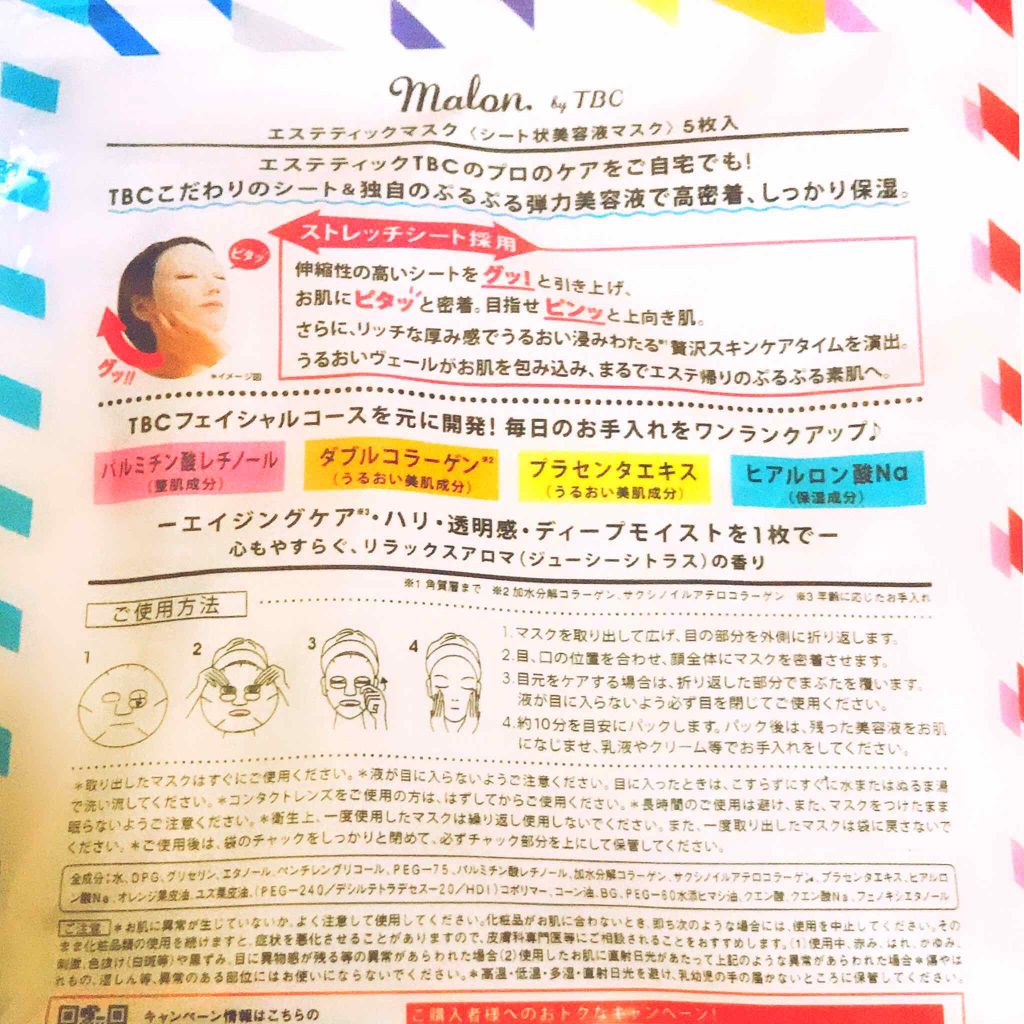 malon. by TBC
エステティックマスク〈シート状美容液マスク〉5枚入
エステティックTBCのプロのケアをご自宅でも!
TBCこだわりのシート&独自のぷるぷる弾力美容液で高密着、しっかり保湿。
ストレッチシート採用
ピタッ
伸縮性の高いシートをグッ!と引き上げ、
お肌にピタッと密着。目指せピンッと上向き肌。
さらに、リッチな厚み感でうるおい浸みわたる※1贅沢スキンケアタイムを演出。
うるおいヴェールがお肌を包み込み、まるでエステ帰りのぷるぷる素肌へ。
グッ!!
※イメージ図
TBCフェイシャルコースを元に開発!毎日のお手入れをワンランクアップ♪
パルミチン酸レチノール
(整肌成分)
ダブルコラーゲン※2
(うるおい美肌成分)
プラセンタエキス
(うるおい美肌成分)
ヒアルロン酸Na
(保湿成分)
ーエイジングケア※3・ハリ・透明感・ディープモイストを1枚でー
心もやすらぐ、リラックスアロマ(ジューシーシトラス)の香り
※1 角質層まで ※2 加水分解コラーゲン、サクシノイルアテロコラーゲン ※3 年齢に応じたお手入れ
ご使用方法
1 2 3 4
1.マスクを取り出して広げ、目の部分を外側に折り返します。
2.目、口の位置を合わせ、顔全体にマスクを密着させます。
3.目元をケアする場合は、折り返した部分でまぶたを覆います。
液が目に入らないよう必ず目を閉じてご使用ください。
4.約10分を目安にパックします。パック後は、残った美容液をお肌
になじませ、乳液やクリーム等でお手入れをしてください。
＊取り出したマスクはすぐにご使用ください。＊液が目に入らないようご注意ください。目に入ったときは、こすらずにすぐに水またはぬるま湯
で洗い流してください。＊コンタクトレンズをご使用の方は、はずしてからご使用ください。＊長時間のご使用は避け、また、マスクをつけたまま
眠らないようご注意ください。＊衛生上、一度使用したマスクは繰り返し使用しないでください。また、一度取り出したマスクは袋に戻さないで
ください。＊ご使用後は、袋のチャックをしっかりと閉めて、必ずチャック部分を上にして保管してください。
全成分:水、DPG、グリセリン、エタノール、ペンチレングリコール、PEG-75、パルミチン酸レチノール、加水分解コラーゲン、サクシノイルアテロコラーゲン、プラセンタエキス、ヒアルロ
ン酸Na、オレンジ果皮油、ユズ果皮油、(PEG-240/デシルテトラデセス-20/HDI)コポリマー、コーン油、BG、PEG-60水添ヒマシ油、クエン酸、クエン酸Na、フェノキシエタノール
ご注意 ＊お肌に異常が生じていないか、よく注意して使用してください。化粧品がお肌に合わないとき、即ち次のような場合には、使用を中止してください。その
まま化粧品類の使用を続けますと、症状を悪化させることがありますので、皮膚科専門医等にご相談されることをおすすめします。(1)使用中、赤み、はれ、かゆみ、
刺激、色抜け(白斑等)や黒ずみ、目に異物感が残る等の異常があらわれた場合(2)使用したお肌に直射日光があたって上記のような異常があらわれた場合＊傷やは
れもの、湿しん等、異常のある部位にはお使いにならないでください。＊高温・低温・多湿・直射日光を避け、乳幼児の手の届かないところに保管してください。
キャンペーン情報はこちらの
ご購入者様へのおトクなキャンペーン!